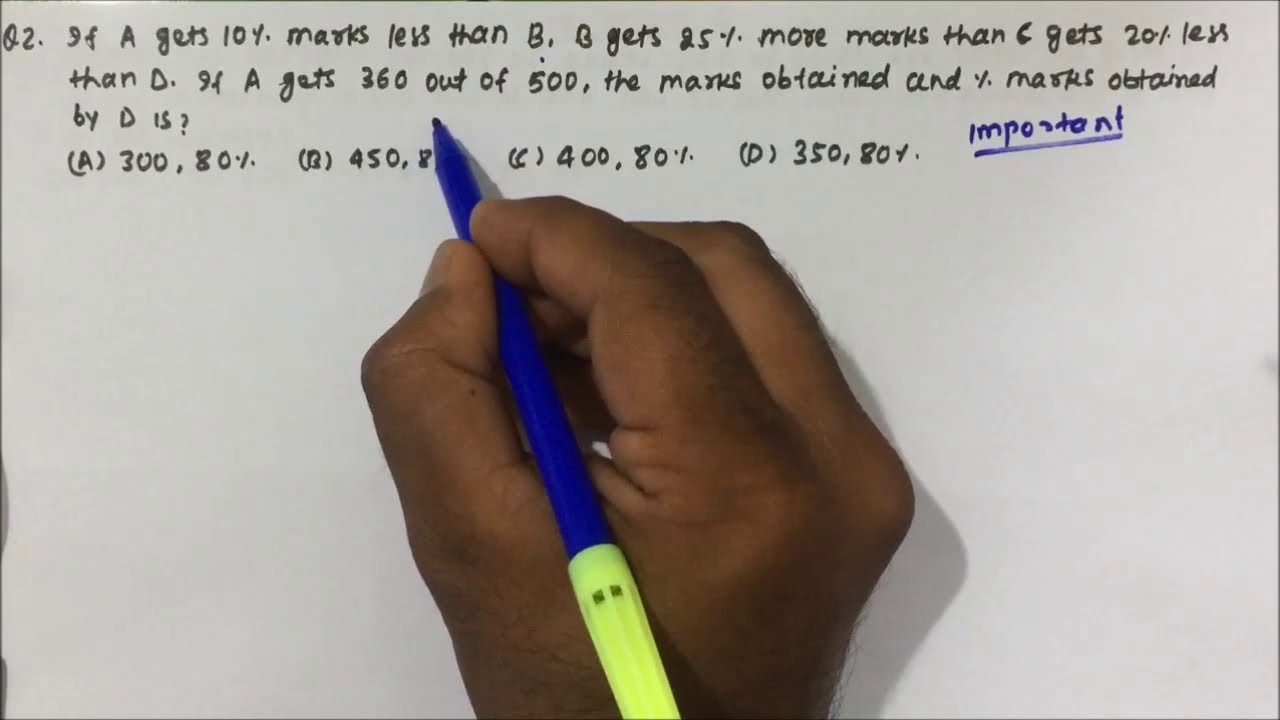 Q2. If A gets 10% marks less than B, B gets 25% more marks than C gets 20% less
than D. If A gets 360 out of 500, the marks obtained and % marks obtained
by D is?
Important
(A) 300, 80% (B) 450, 8 (C) 400, 80% (D) 350, 80%.